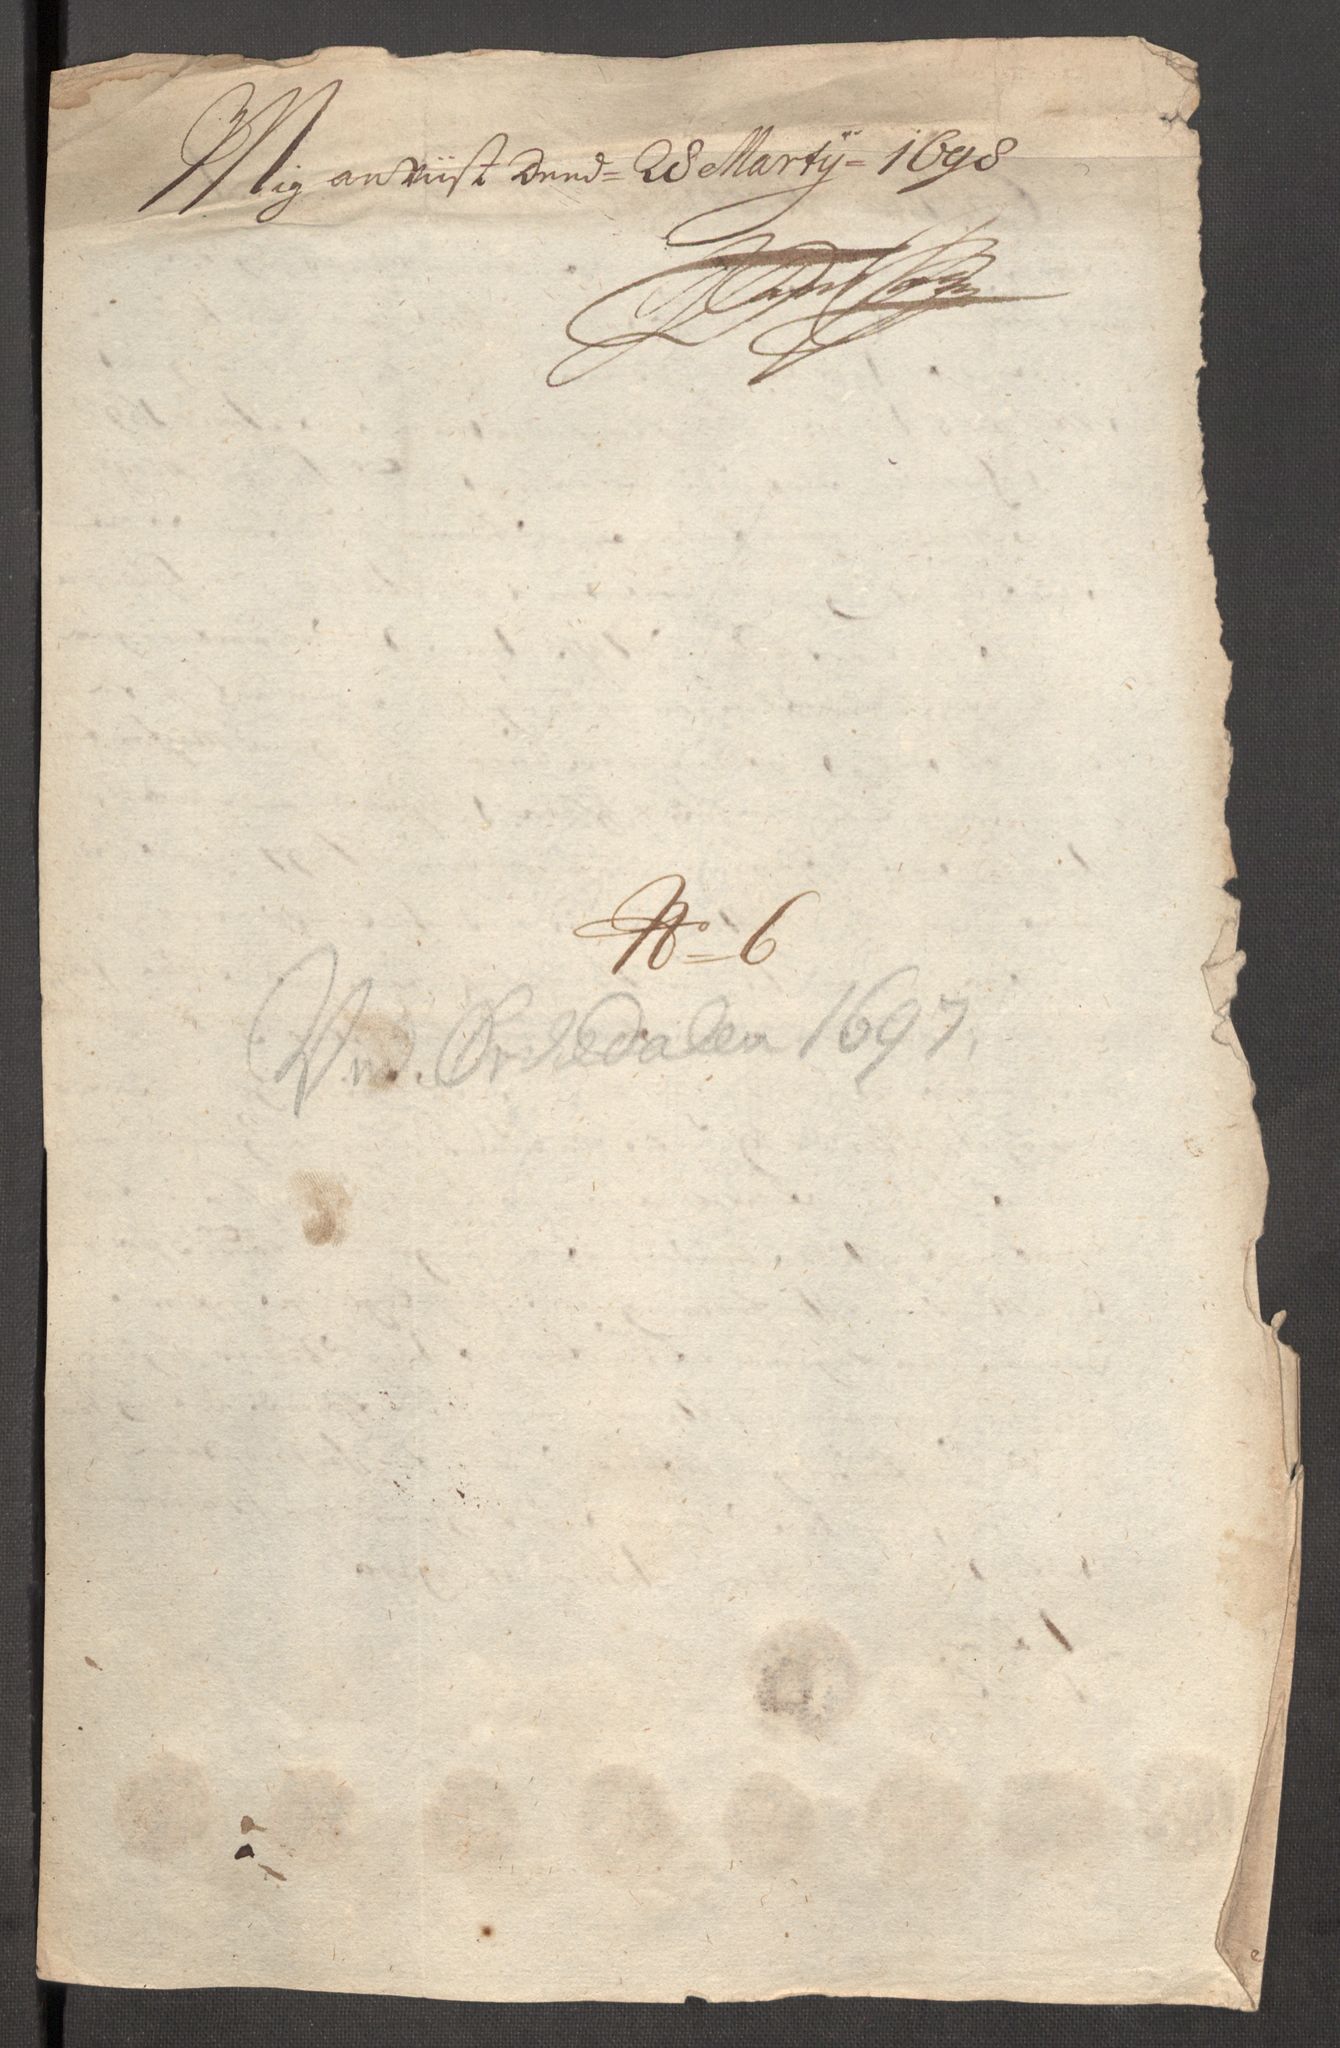 Mig anviist Dend= 28 Martÿ= 1698
No= 6
Vd. Orchedalen 1697.